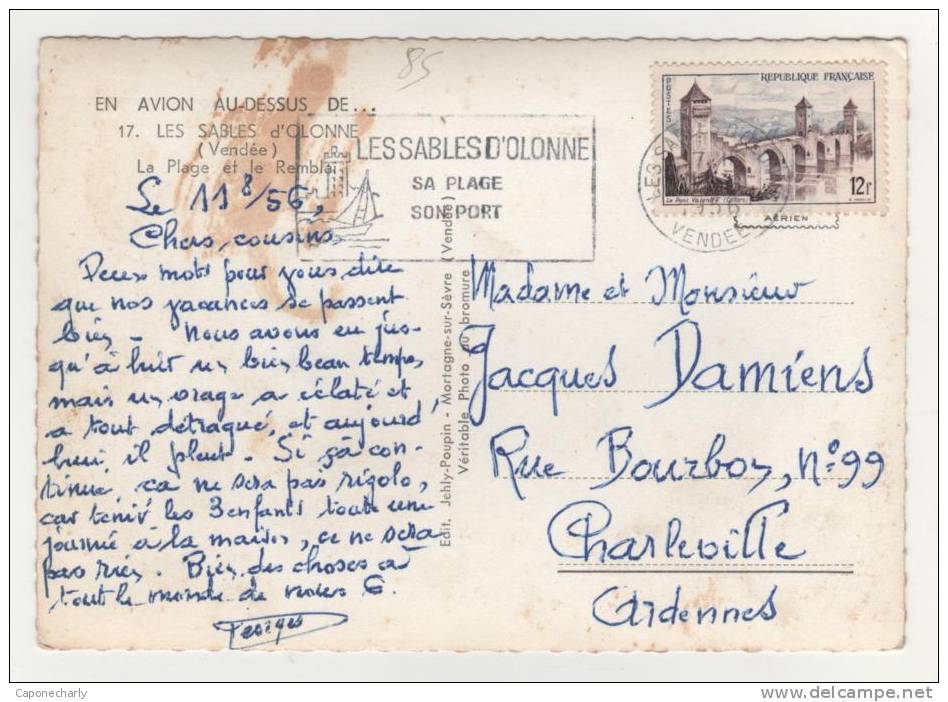 85
EN AVION AU-DESSUS DE...
17. LES SABLES d'OLONNE
(Vendée)
La Plage et le Remblai
LES SABLES D'OLONNE
SA PLAGE
SON PORT
POSTES
REPUBLIQUE FRANÇAISE
12F
Le Pont Valentré (Cahors)
AÉRIEN
VENDEE
Le 11 8/56,
Chers cousins
Deux mots pour vous dire
que nos vacances se passent
bien - Nous avons eu jus-
qu'à hier un bien beau temps,
mais un orage a éclaté et
a tout détraqué, et aujourd'
hui, il pleut. Si ça con-
tinue, ça ne sera pas rigolo,
car tenir les 3 enfants toute une
journée à la maison, ce ne sera
pas rien. Bien des choses à
tout le monde de nous 6.
Georges
Edit. Jehly-Poupin - Mortagne-sur-Sèvre (Vendée)
Véritable Photo au bromure
Madame et Monsieur
Jacques Damiens
Rue Bourbon, n°99
Charleville
Ardennes
Caponecharly
delcampe.net